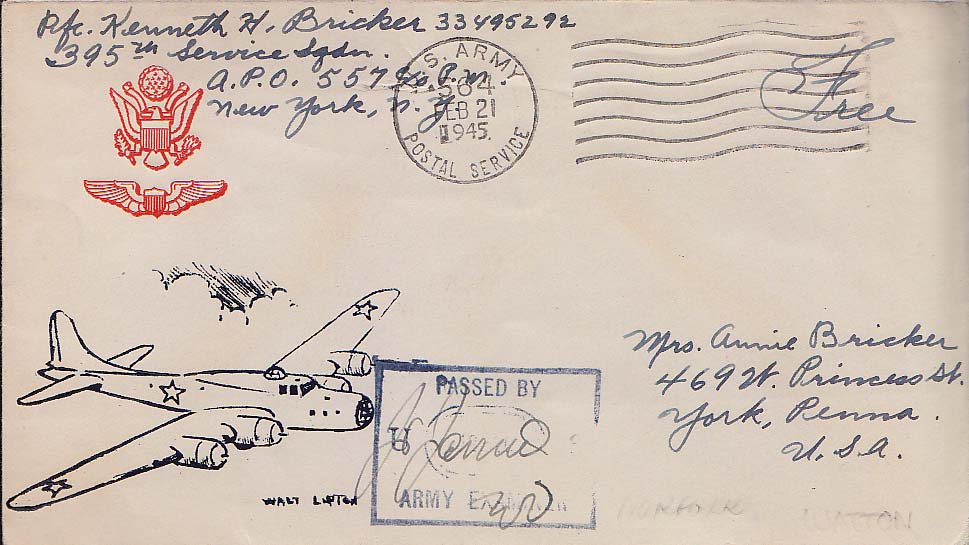 Pfc. Kenneth H. Bricker 33495292
395th Service Sqdn.
A.P.O. 557 % P.M.
New York, N.Y.
U.S. ARMY
564
FEB 21
1945
POSTAL SERVICE
Free
Mrs. Annie Bricker
469 W. Princess St.
York, Penna.
U.S.A.
PASSED BY
ARMY EXAMINER
WALT LIPTON